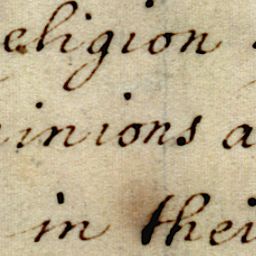 eligion
inions a
in thei